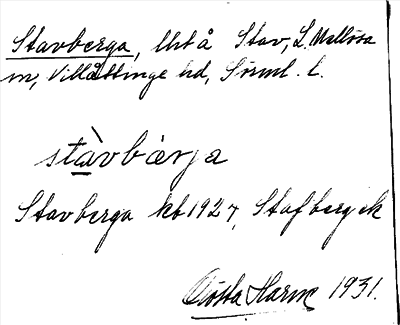 Stavberga, lht å Stav, L. Mellösa
sn, Villåttinge hd, Sörml. l.
stàvbærja
Stavberga kb 1927, Stafberg ek
Gösta Harm 1931.